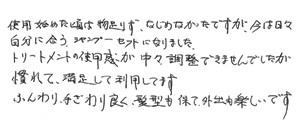 使用始めた頃は物足りず、なじめなかたですが、今は日々
自分に合う、シャンプーセットになりました。
トリートメントの使用感が中々調整できませんでしたが
慣れて、満足して利用してます
ふんわり、手ざわり良く、髪型も保て、外出も楽しいです